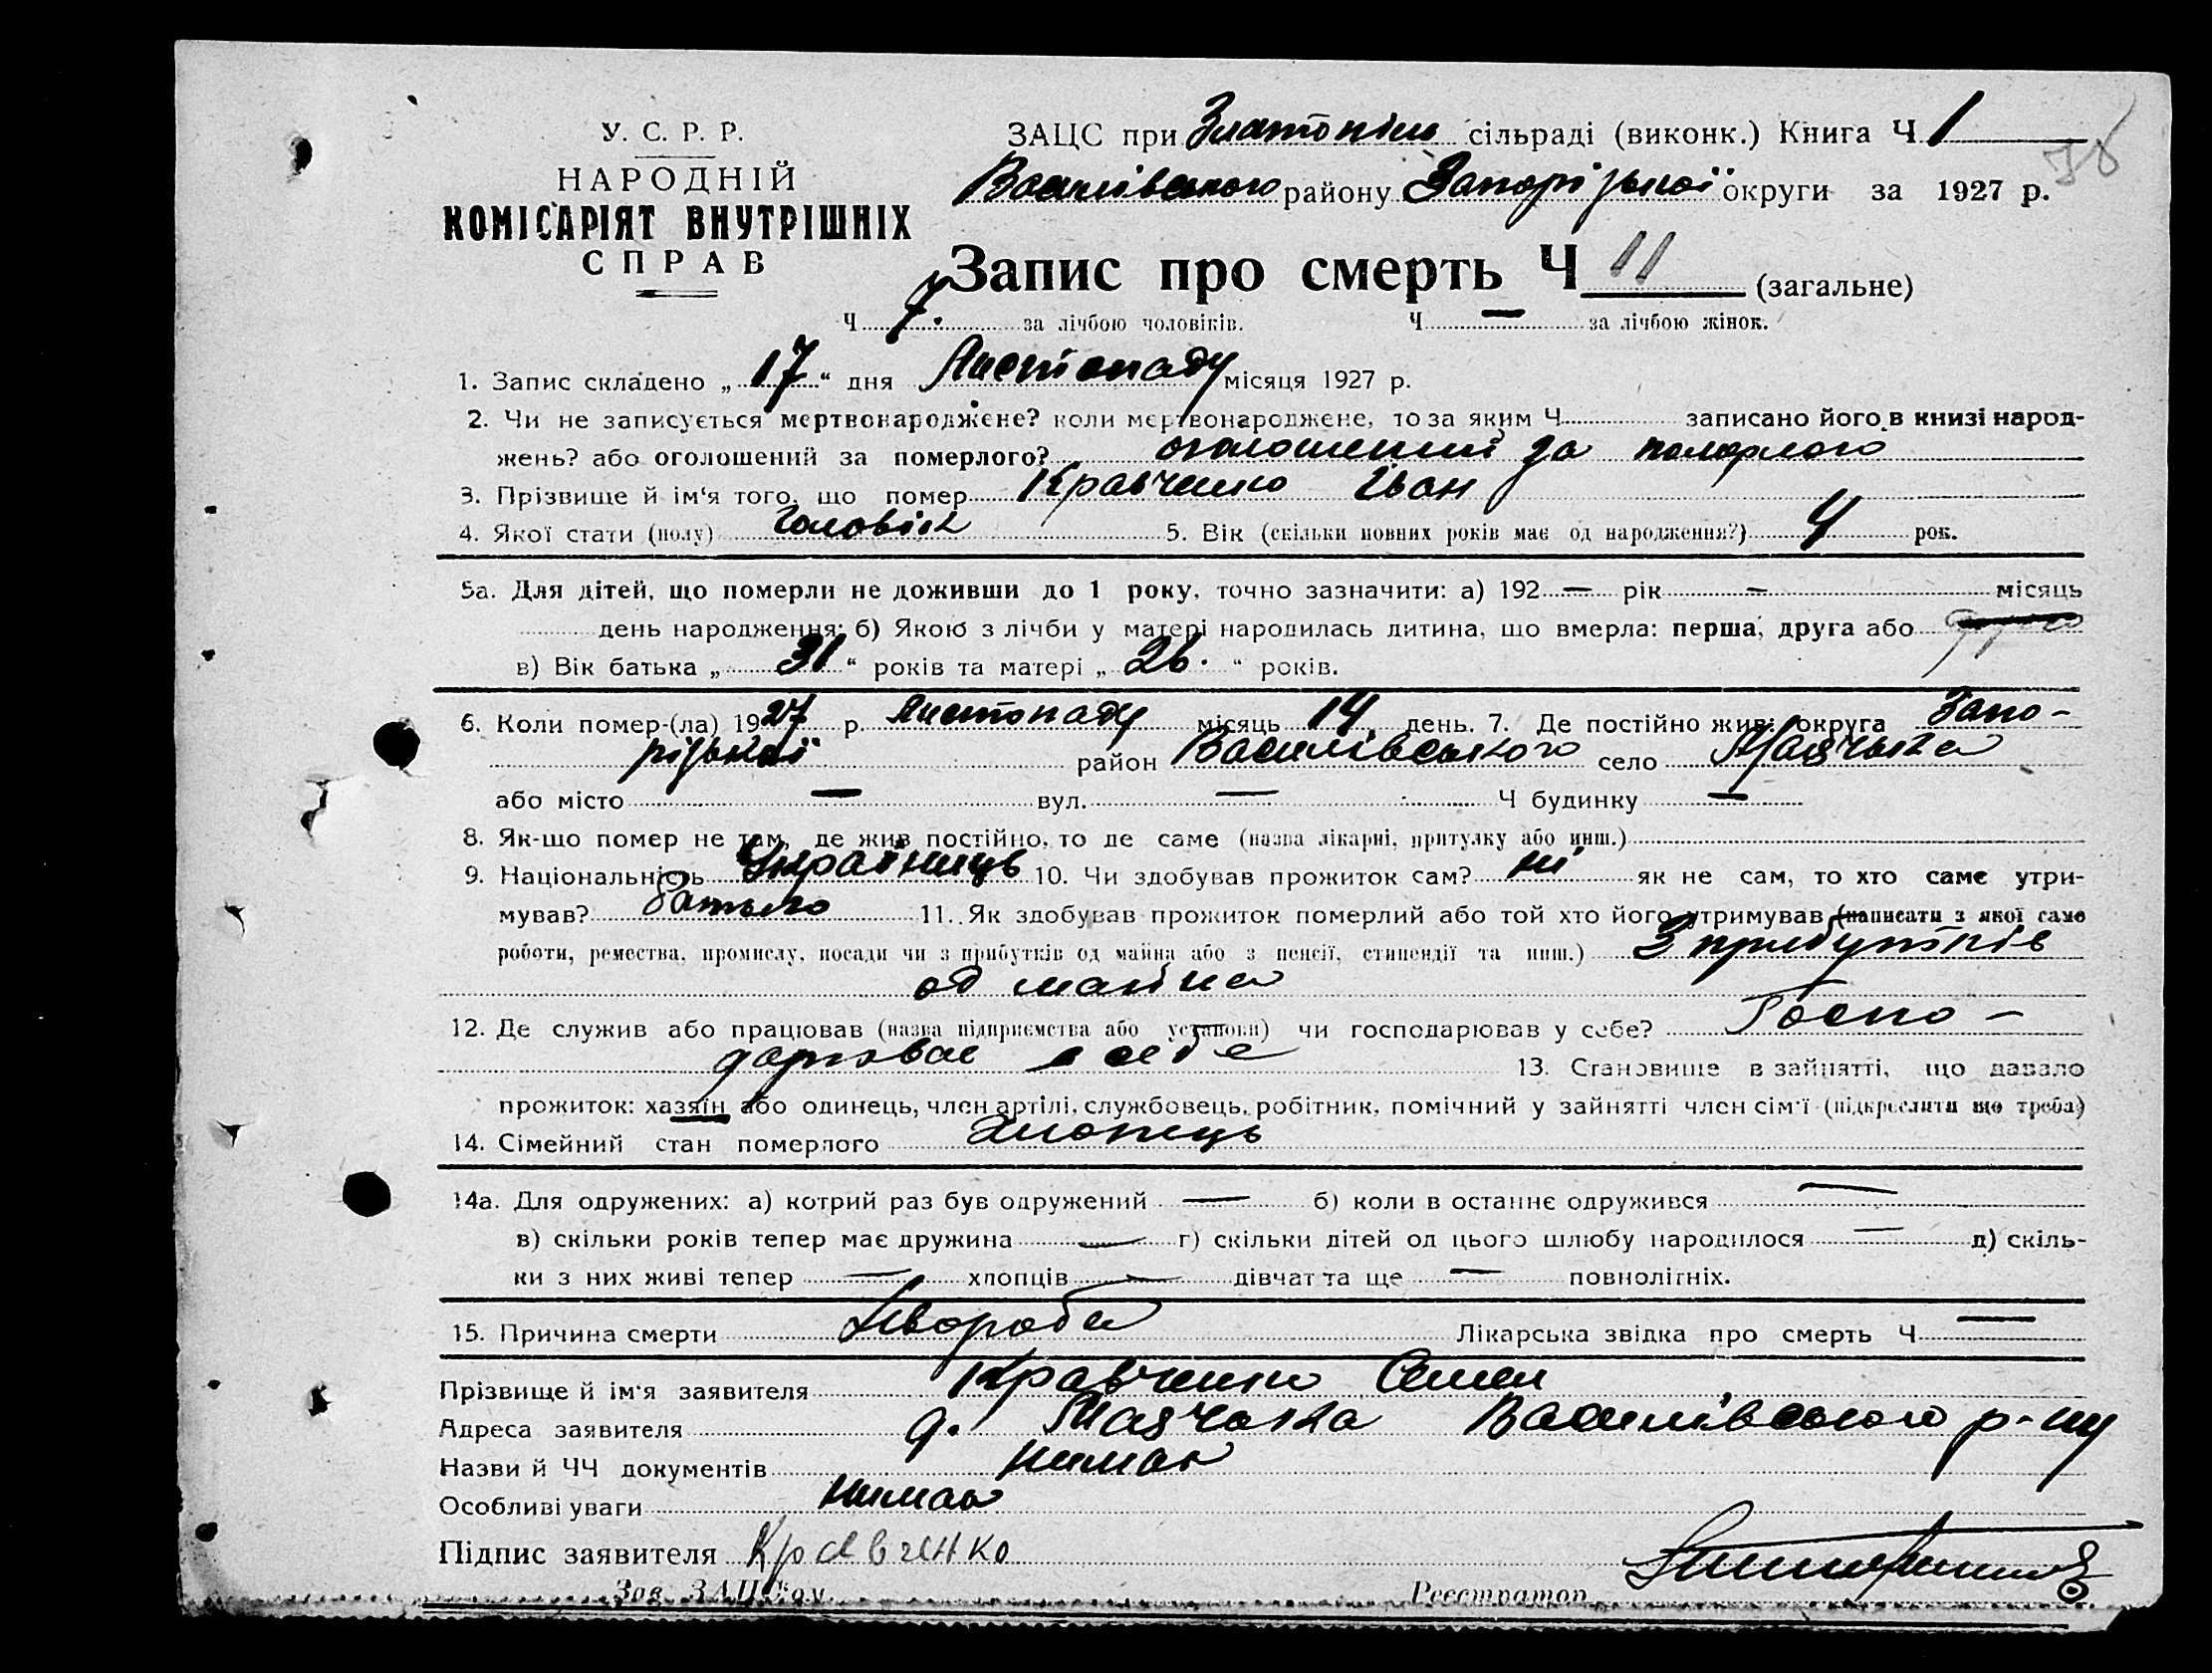 У. С. Р. Р.
НАРОДНІЙ
КОМІСАРІЯТ ВНУТРІШНІХ
СПРАВ
ЗАЦС при Златопіль сільраді (виконк.) Книга Ч 1
Василівського району Запорізької округи за 1927 р.
Запис про смерть Ч 11 (загальне)
Ч 7. за лічбою чоловіків. Ч — за лічбою жінок.
1. Запис складено „ 17 “ дня Листопаду місяця 1927 р.
2. Чи не записується мертвонароджене? коли мертвонароджене, то за яким Ч записано його в книзі народ-
жень? або оголошений за померлого? оголошений за померлого
3. Прізвище й ім'я того, що помер Кравченко Іван
4. Якої стати (полу) Чоловік 5. Вік (скільки повних років має од народження?) 4 рок.
5а. Для дітей, що померли не доживши до 1 року, точно зазначити: а) 192 — рік — місяць
день народження; б) Якою з лічби у матері народилась дитина, що вмерла: перша, друга або
в) Вік батька „ 31 “ років та матері „ 26. “ років.
6. Коли помер-(ла) 1927 р. Листопаду місяць 14 день. 7. Де постійно жив: округа Запо-
різької район Василівського село Маячька
або місто — вул. — Ч будинку —
8. Як-що помер не там, де жив постійно, то де саме (назва лікарні, притулку або инш.)
9. Національність Українець 10. Чи здобував прожиток сам? ні як не сам, то хто саме утри-
мував? Батько 11. Як здобував прожиток померлий або той хто його утримував (написати з якої саме
роботи, ремества, промислу, посади чи з прибутків од майна або з пенсії, стипендії та инш.) З прибутків
од майна
12. Де служив або працював (назва підприємства або установи) чи господарював у себе? Госпо-
дарював в себе 13. Становище в зайнятті, що давало
прожиток: хазяїн або одинець, член артілі, службовець, робітник, помічний у зайнятті член сім'ї (підкреслити що треба)
14. Сімейний стан померлого Хлопець
14а. Для одружених: а) котрий раз був одружений — б) коли в останнє одружився —
в) скільки років тепер має дружина — г) скільки дітей од цього шлюбу народилося — д) скіль-
ки з них живі тепер — хлопців — дівчат та ще — повнолітніх.
15. Причина смерти Хвороба Лікарська звідка про смерть Ч —
Прізвище й ім'я заявителя Кравченко Семен
Адреса заявителя д. Маячька Василівського р-ну
Назви й ЧЧ документів Нимає
Особливі уваги Нимає
Підпис заявителя Кравченко
Зав. ЗАЦС'ом Реєстратор